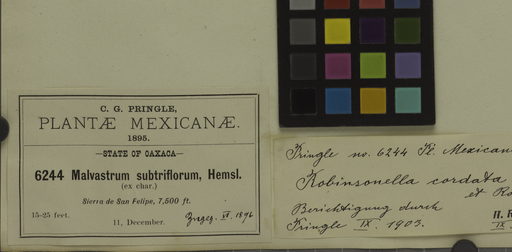 C. G. PRINGLE,
PLANTÆ MEXICANÆ.
1895.
STATE OF OAXACA
6244 Malvastrum subtriflorum, Hemsl.
(ex char.)
Sierra de San Felipe, 7,500 ft.
15-25 feet.
11, December.
VI. 1896
Pringle no. 6244 Pl. Mexican
Robinsonella cordata
et Ro
Berichtigung durch
Pringle IX. 1903.
H. R
IX.